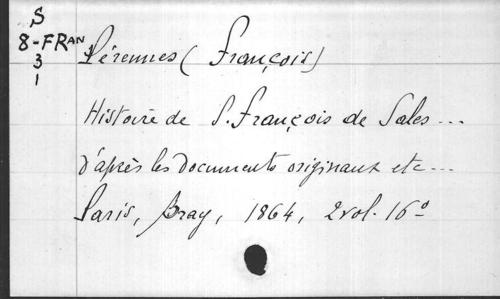 S
8-FRAN
3
1
Pérennes (François)
Histoire de S. François de Sales...
d'après les documents originaux etc...
Paris, Bray, 1864, 2 vol. 16º